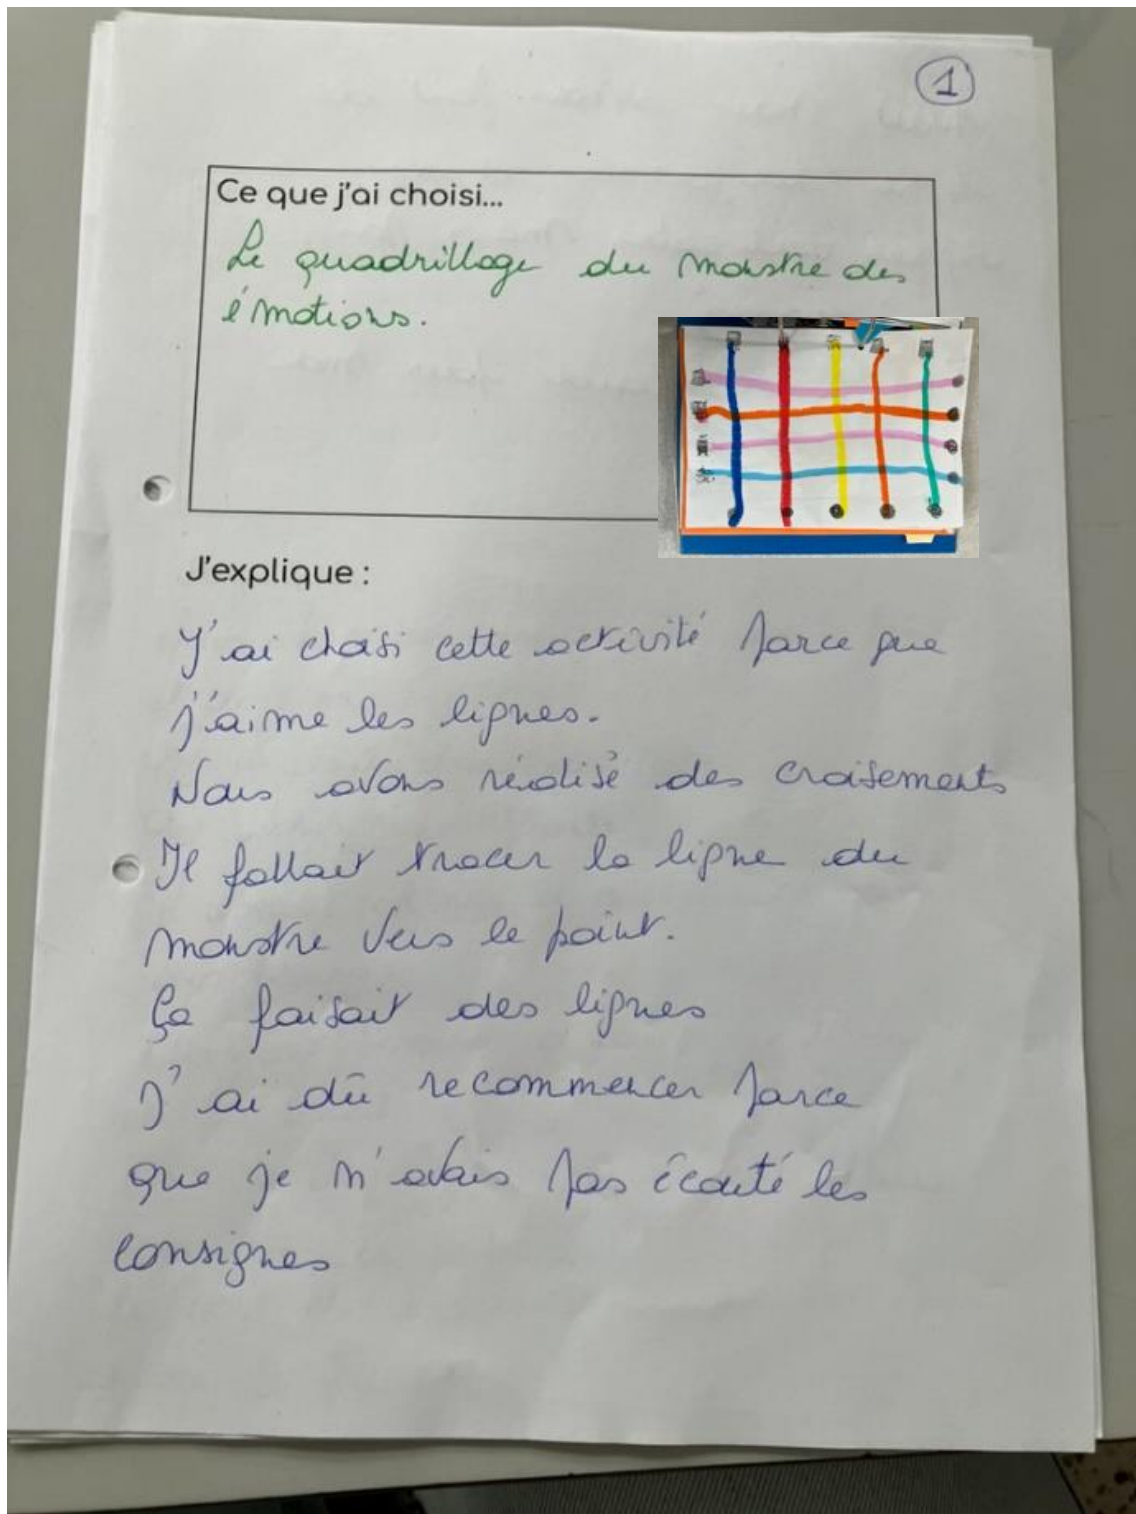 1
Ce que j'ai choisi...
Le quadrillage du monstre des
émotions.
J'explique :
J'ai choisi cette activité parce que
j'aime les lignes.
Nous avons réalisé des croisements
Il fallait tracer la ligne du
monstre vers le point.
Ça faisait des lignes
J'ai dû recommencer parce
que je n'avais pas écouté les
consignes